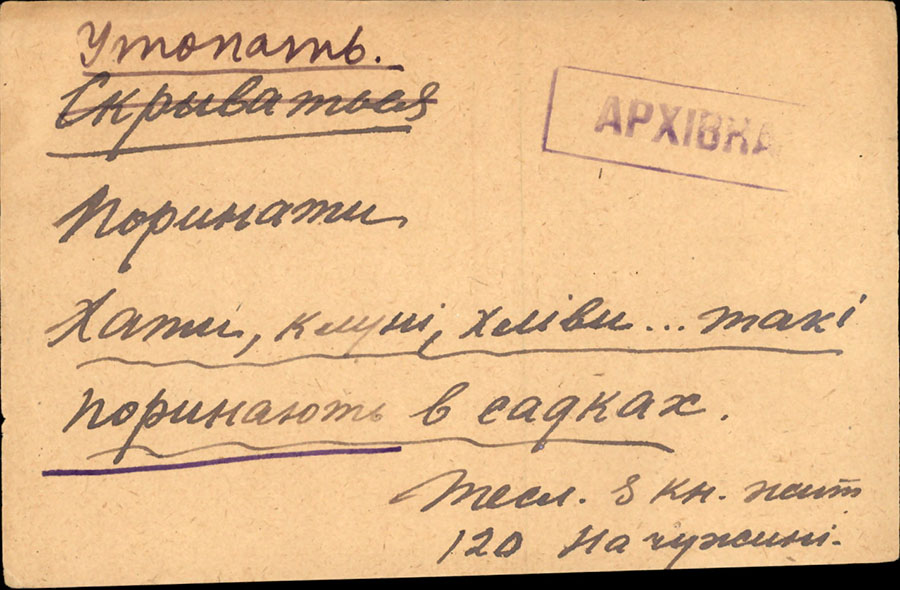 Утопать.
Скрываться
АРХІВКА
Поринати
Хати, клуні, хліви... такі
поринають в садках.
Тесл. З кн. жит
120 На чужині.